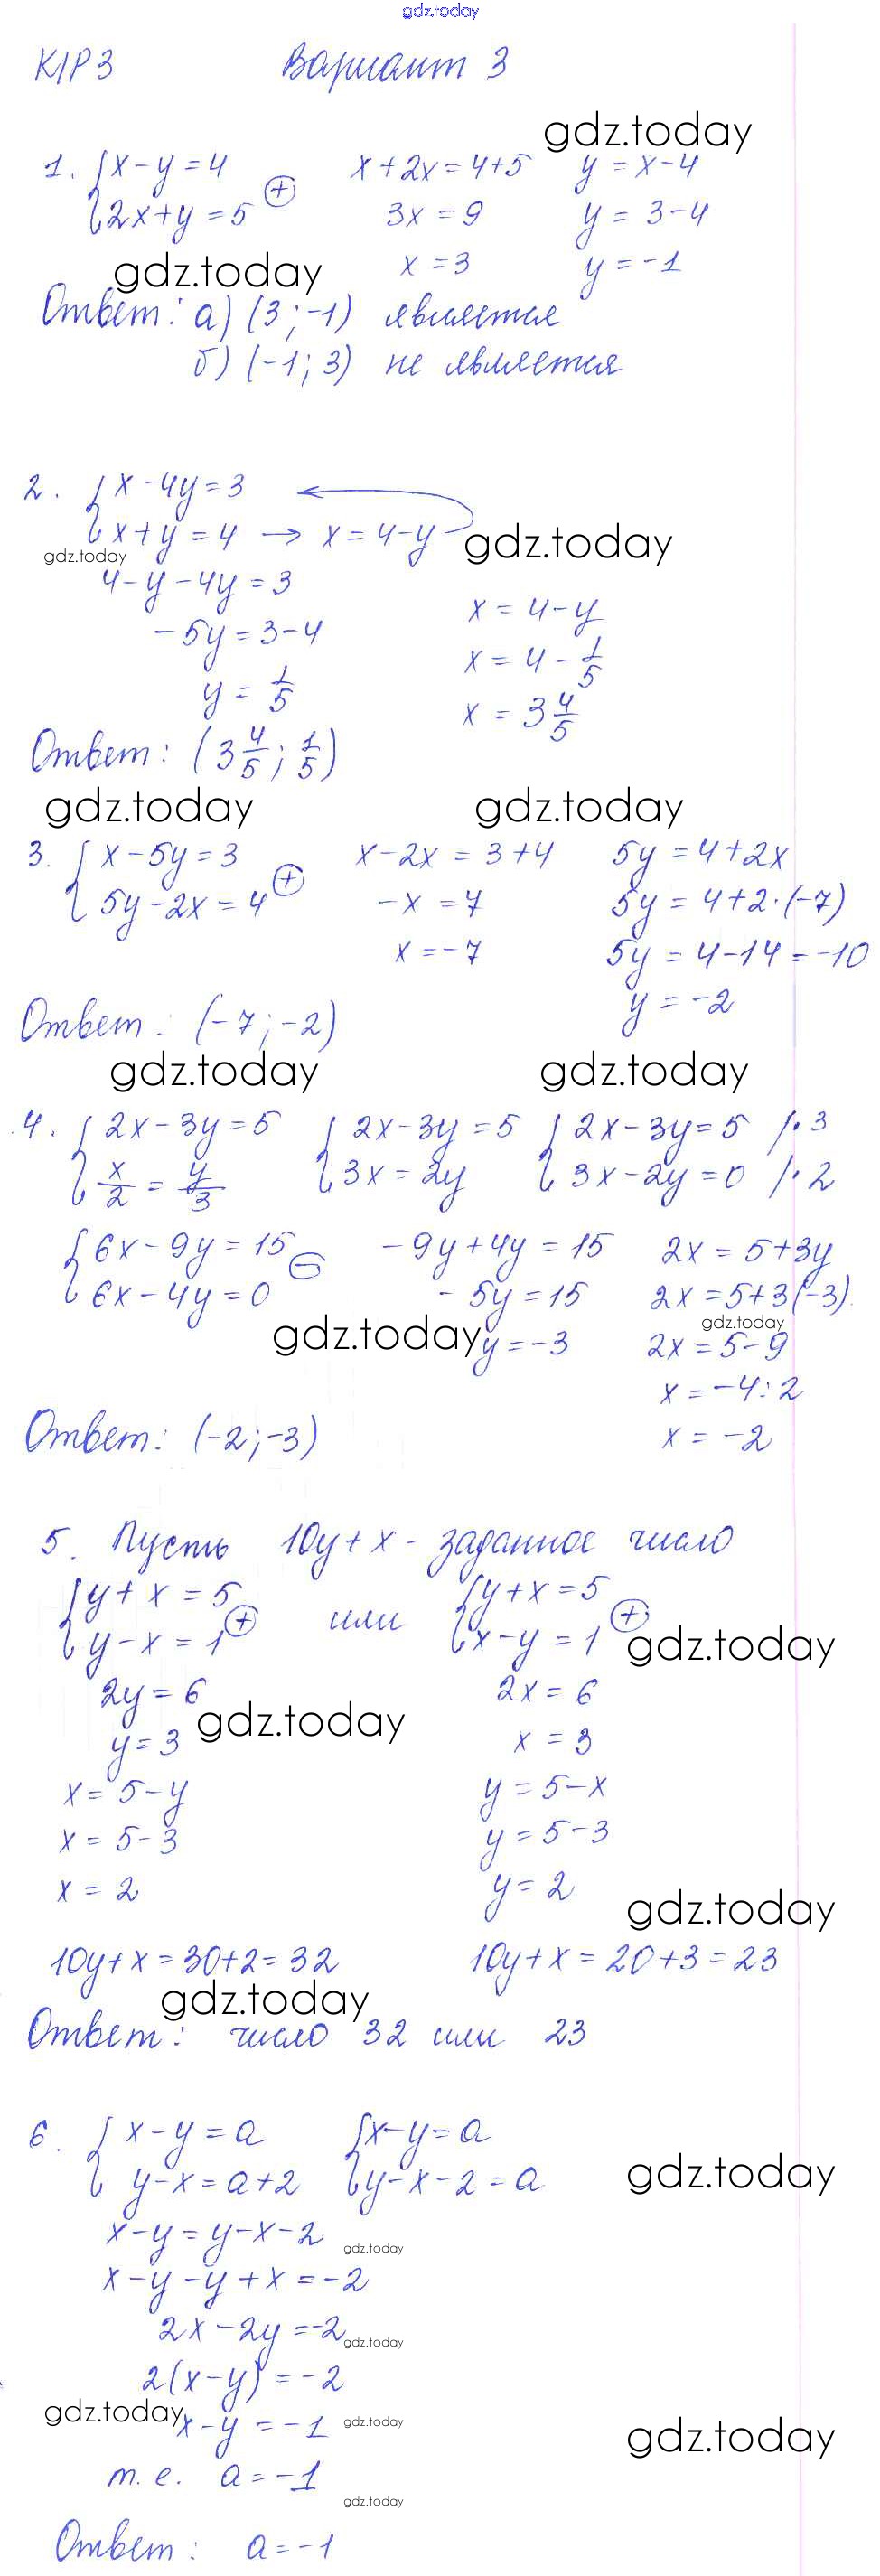 gdz.today
К/Р 3 Вариант 3
gdz.today
1. { x - y = 4 x + 2x = 4 + 5 y = x - 4
2x + y = 5 ⊕ 3x = 9 y = 3 - 4
gdz.today x = 3 y = -1
Ответ: а) (3; -1) является
б) (-1; 3) не является
2. { x - 4y = 3 ←
x + y = 4 → x = 4 - y gdz.today
gdz.today
4 - y - 4y = 3 x = 4 - y
-5y = 3 - 4 x = 4 - 1/5
y = 1/5 x = 3 4/5
Ответ: (3 4/5; 1/5)
gdz.today gdz.today
3. { x - 5y = 3 x - 2x = 3 + 4 5y = 4 + 2x
5y - 2x = 4 ⊕ -x = 7 5y = 4 + 2·(-7)
x = -7 5y = 4 - 14 = -10
Ответ: (-7; -2) y = -2
gdz.today gdz.today
4. { 2x - 3y = 5 { 2x - 3y = 5 { 2x - 3y = 5 /·3
x/2 = y/3 3x = 2y 3x - 2y = 0 /·2
{ 6x - 9y = 15 ⊖ -9y + 4y = 15 2x = 5 + 3y
6x - 4y = 0 -5y = 15 2x = 5 + 3(-3)
gdz.today y = -3 gdz.today
2x = 5 - 9
x = -4 : 2
Ответ: (-2; -3) x = -2
5. Пусть 10y + x - заданное число
{ y + x = 5 или { y + x = 5
y - x = 1 ⊕ x - y = 1 ⊕ gdz.today
2y = 6 2x = 6
y = 3 gdz.today x = 3
x = 5 - y y = 5 - x
x = 5 - 3 y = 5 - 3
x = 2 y = 2
gdz.today
10y + x = 30 + 2 = 32 10y + x = 20 + 3 = 23
gdz.today
Ответ: число 32 или 23
6. { x - y = a { x - y = a
y - x = a + 2 y - x - 2 = a gdz.today
x - y = y - x - 2 gdz.today
x - y - y + x = -2
2x - 2y = -2 gdz.today
2(x - y) = -2
gdz.today x - y = -1 gdz.today gdz.today
т. е. a = -1
gdz.today
Ответ: a = -1